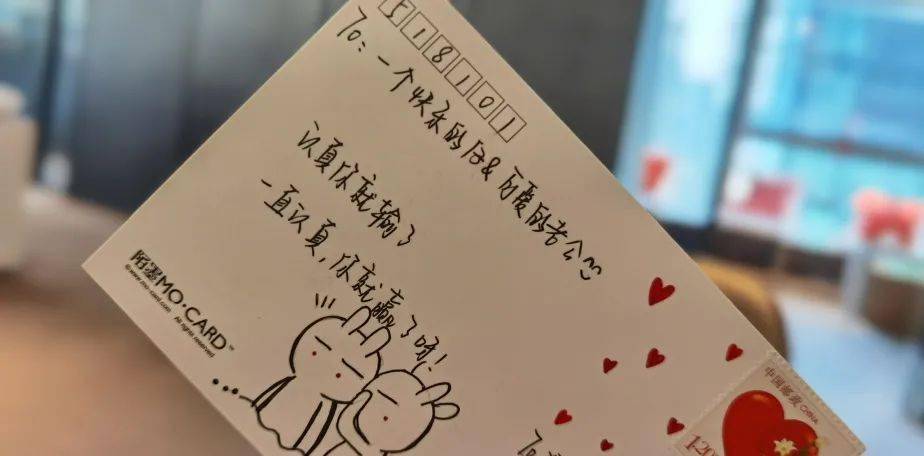 518101
To: 一个快乐的仔& 可爱的老公
认真你就输了
一直认真,你就赢了呀!
陌墨MO·CARD™
©www.mo-card.com All rights reserved.
中国邮政 CHINA
1.20
To